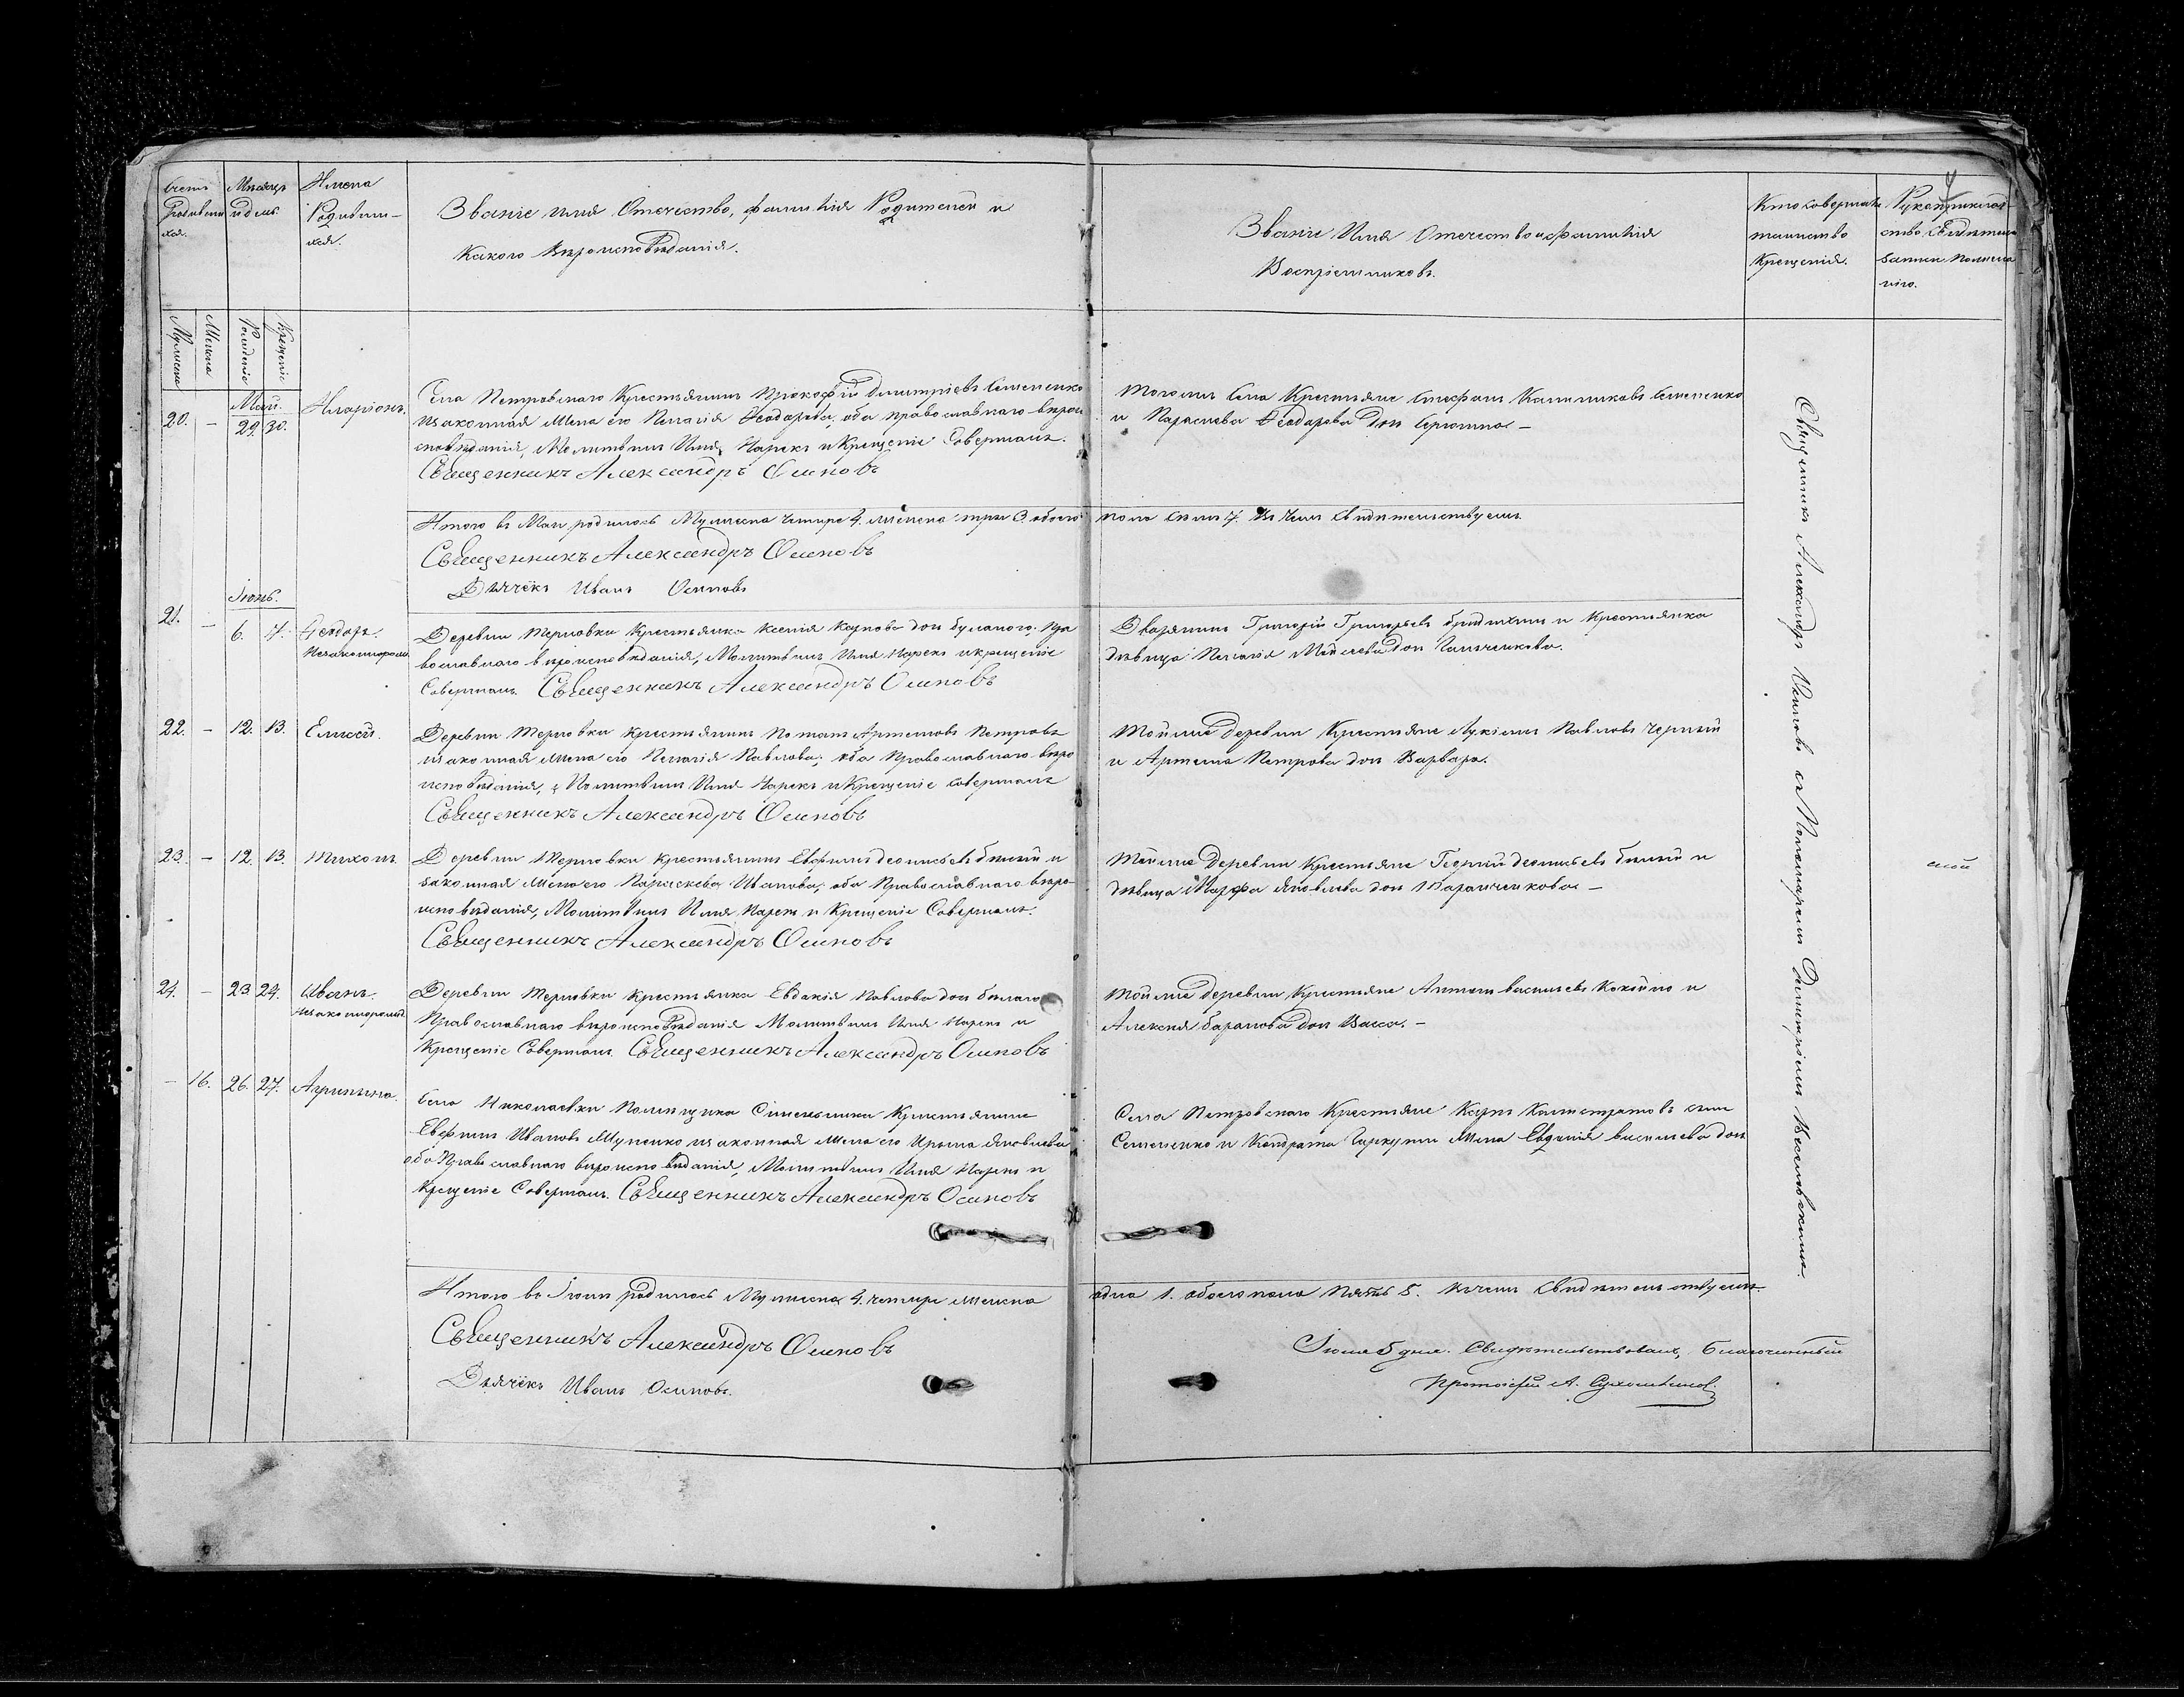 Счетъ родившихся.
Мѣсяцъ и день.
Имена Родившихся.
Званіе имя Отечество, фамилія Родителей и
Какого Вѣроисповѣданія.
Званіе Имя Отечество и фамилія
Воспріемниковъ.
Кто совершалъ
таинство
Крещенія.
Мужеска
Женска
Рожденіе
Крещеніе
Май.
20. — 29. 30. Иларіонъ.
Села Петровскаго Крестьянинъ Прокофій Дмитріевъ Семененко
и законная Жена его Пелагія Ѳеодорова, оба православнаго вѣрои
сповѣданія, Молитвилъ Имя, Нарекъ и Крещеніе Совершалъ.
Священникъ Александръ Осиповъ
Тогожъ Села Крестьяне Стефанъ Семененко
и Параскева Ѳеодорова дон
Итого въ Маи родилось Мужеска четыре 4. женска три 3. обоего
пола семь 7. Въ чемъ Свидѣтельствуемъ
Священникъ Александръ Осиповъ
Дьячёкъ Иванъ Осиповъ
Іюнь.
21. — 6. 7. Ѳеодоръ.
Незаконнорож.
Деревни Терновки Крестьянка Ксенія Карпова дон Пра
вославнаго вѣроисповѣданія, Молитвилъ Имя Нарекъ и крещеніе
Совершалъ. Священникъ Александръ Осиповъ
Дворянинъ Григорій Григорьевъ и Крестьянка
дѣвица Пелагія дон
22. — 12. 13. Елисей.
Деревни Терновки крестьянинъ Потапъ Артемовъ Петровъ
и законная жена его Пелагія Павлова, оба Православнаго вѣро
исповѣданія, Молитвилъ Имя Нарекъ и Крещеніе совершалъ
Священникъ Александръ Осиповъ
Тойже деревни Крестьяне Лукіянъ Павловъ Черный
и Артема Петрова дон Варвара.
23. — 12. 13. Тихонъ
Деревни Терновки крестьянинъ Евфимъ Леонтьевъ Бѣлый и
законная Жена его Параскева Иванова, оба Православнаго вѣро-
исповѣданія, Молитвилъ Имя, Нарекъ и Крещеніе Совершалъ.
Священникъ Александръ Осиповъ
Тойже Деревни Крестьяне Георгій Леонтьевъ Бѣлый и
дѣвица Марфа Яковлева дон —
24. — 23. 24. Иванъ.
Незаконнорожд.
Деревни Терновки крестьянка Евдокія Павлова дон Бѣлаго
Православнаго вѣроисповѣданія Молитвилъ Имя Нарекъ и
Крещеніе Совершалъ. Священникъ Александръ Осиповъ
Тойже деревни, Крестьяне Антонъ Васильевъ и
Алексѣя Баранова дон Васса. —
— 16. 26. 27. Агрипина.
Села Николаевки Помѣщика Крестьянинъ
Евфимъ Ивановъ и законная Жена его Ирина Яковлева
оба Православнаго вѣроисповѣданія, Молитвилъ Имя Нарекъ и
Крещеніе Совершалъ. Священникъ Александръ Осиповъ
Села Петровскаго Крестьяне Карпъ Калистратовъ сынъ
Семененко и Кондрата Жена Евдокія Васильева дон
Итого въ Іюнѣ родилось Мужеска 4. четыре женска
одна 1. обоего пола Пять 5. Въ чемъ Свидѣтельствуемъ
Священникъ Александръ Осиповъ
Дьячёкъ Иванъ Осиповъ.
Іюля 5 дня. Свидѣтельствовалъ, Благочинный
Протоіерей А.
Священникъ Александръ Осиповъ съ Пономаремъ Димитріемъ